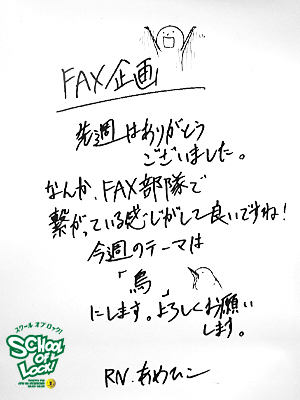 FAX企画
先週はありがとう
ございました。
なんか、FAX部隊で
繋がっている感じがして良いですね!
今週のテーマは
「鳥」
にします。よろしくお願い
します。
RN.あめひこ
スクール オブ ロック!
SCHOOL
OF
LOCK!